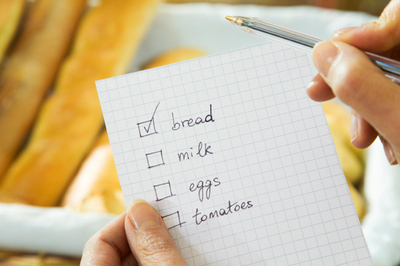 bread
milk
eggs
tomatoes